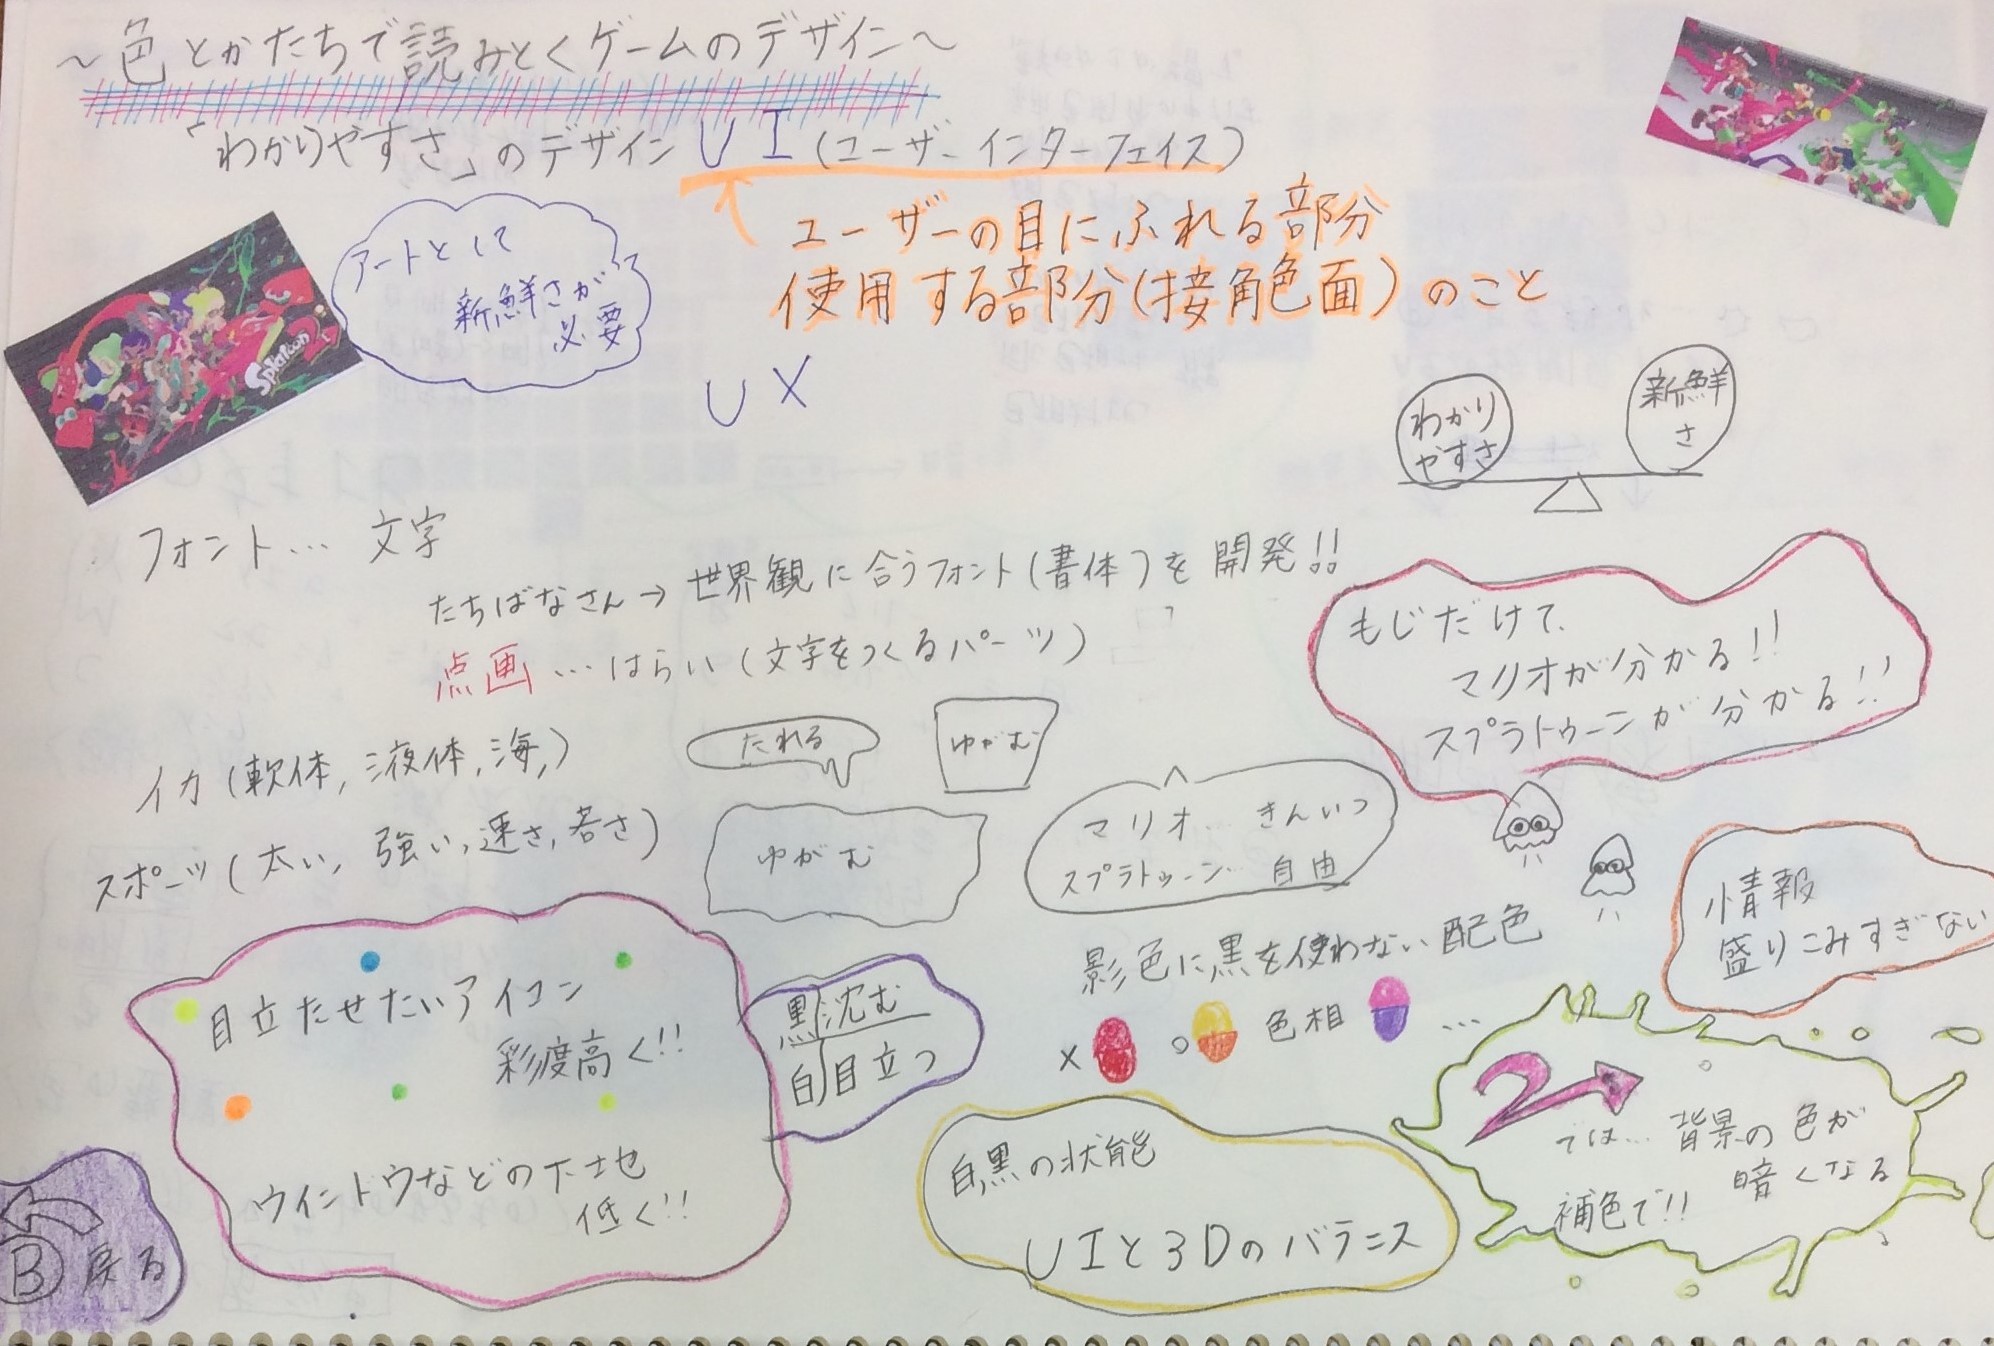 ～色とかたちで読みとくゲームのデザイン～
「わかりやすさ」のデザイン UI(ユーザーインターフェイス)
ユーザーの目にふれる部分
使用する部分(接触面)のこと
アートとして
新鮮さが
必要
Splatoon 2
UX
わかり
やすさ
新鮮
さ
フォント… 文字
たちばなさん→世界観に合うフォント(書体)を開発!!
点画…はらい(文字をつくるパーツ)
もじだけで、
マリオが分かる!!
スプラトゥーンが分かる!!
イカ(軟体,液体,海,)
たれる
ゆがむ
スポーツ(太い, 強い,速さ,若さ)
ゆがむ
マリオ… きんいつ
スプラトゥーン… 自由
情報
盛りこみすぎない
影色に黒を使わない配色
× ○ 色相 …
目立たせたいアイコン
彩度高く!!
ウインドウなどの下地
低く!!
黒 沈む
白 目立つ
白黒の状態
UIと3Dのバランス
2では… 背景の色が
暗くなる
補色で!!
B 戻る